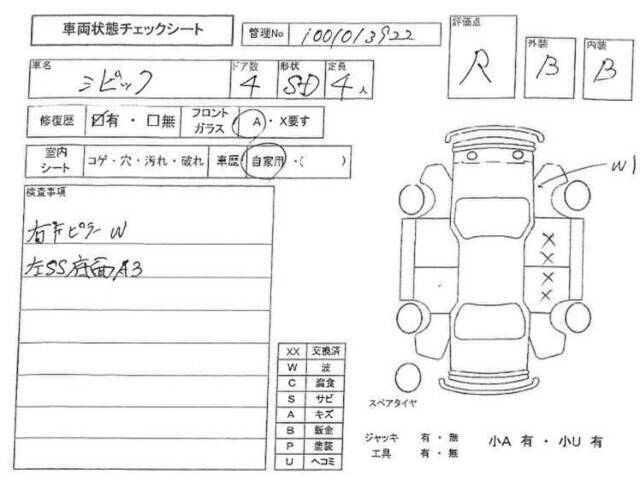 車両状態チェックシート
管理No 1001013922
評価点 R
外装 B
内装 B
車名 シビック
ドア数 4
形状 SD
定員 4人
修復歴 ☑有 ・ □無
フロントガラス A ・ X要す
室内シート コゲ・穴・汚れ・破れ
車歴 自家用 ・( )
検査事項
右Fピラー W
左SS底面A3
W1
X
X
X
X
XX 交換済
W 波
C 腐食
S サビ
A キズ
B 鈑金
P 塗装
U ヘコミ
スペアタイヤ
ジャッキ 有 ・ 無
工具 有 ・ 無
小A 有 ・ 小U 有